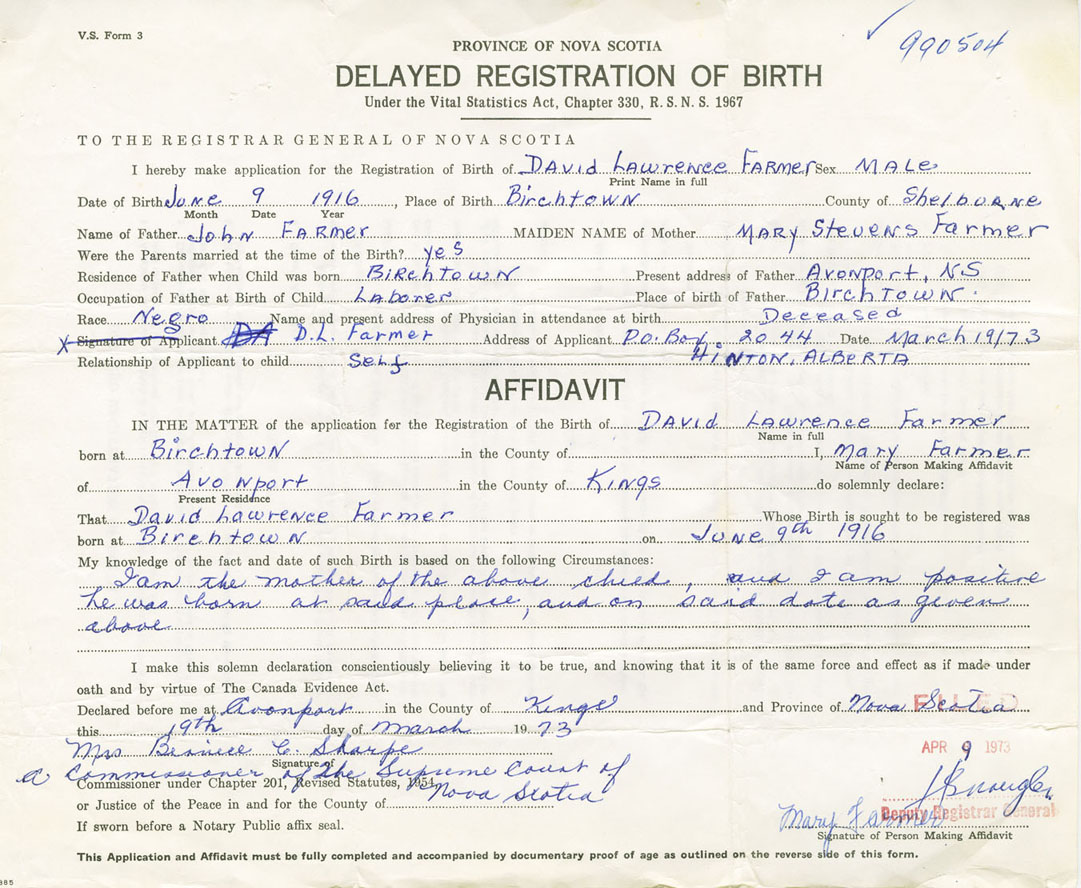 V.S. Form 3
990504
PROVINCE OF NOVA SCOTIA
DELAYED REGISTRATION OF BIRTH
Under the Vital Statistics Act, Chapter 330, R.S.N.S. 1967
TO THE REGISTRAR GENERAL OF NOVA SCOTIA
I hereby make application for the Registration of Birth of DAVID LAWRENCE FARMER Sex MALE
Print Name in full
Date of Birth JUNE 9 1916, Place of Birth BIRCHTOWN County of SHELBURNE
Month Date Year
Name of Father JOHN FARMER MAIDEN NAME of Mother MARY STEVENS FARMER
Were the Parents married at the time of the Birth? yes
Residence of Father when Child was born BIRCHTOWN Present address of Father AVONPORT, NS
Occupation of Father at Birth of Child LABORER Place of birth of Father BIRCHTOWN.
Race Negro Name and present address of Physician in attendance at birth Deceased
X Signature of Applicant DA D.L. Farmer Address of Applicant P.O. Box. 2044 Date March 19/73
Relationship of Applicant to child Self HINTON, ALBERTA
AFFIDAVIT
IN THE MATTER of the application for the Registration of the Birth of DAVID LAWRENCE FARMER
Name in full
born at BIRCHTOWN in the County of I, MARY FARMER
Name of Person Making Affidavit
of AVONPORT in the County of KINGS do solemnly declare:
Present Residence
That DAVID LAWRENCE FARMER Whose Birth is sought to be registered was
born at BIRCHTOWN on JUNE 9th 1916
My knowledge of the fact and date of such Birth is based on the following Circumstances:
I am the mother of the above child, and I am positive
he was born at said place, and on said date as given
above
I make this solemn declaration conscientiously believing it to be true, and knowing that it is of the same force and effect as if made under
oath and by virtue of The Canada Evidence Act.
Declared before me at Avonport in the County of Kings and Province of Nova Scotia
FILED
this 19th day of March 1973
APR 9 1973
Mrs Bernice C. Sharpe
Signature of
a Commissioner of the Supreme Court of
Commissioner under Chapter 201, Revised Statutes, 1954,
Nova Scotia
or Justice of the Peace in and for the County of
Deputy Registrar General
Mary Farmer
If sworn before a Notary Public affix seal.
Signature of Person Making Affidavit
This Application and Affidavit must be fully completed and accompanied by documentary proof of age as outlined on the reverse side of this form.
885